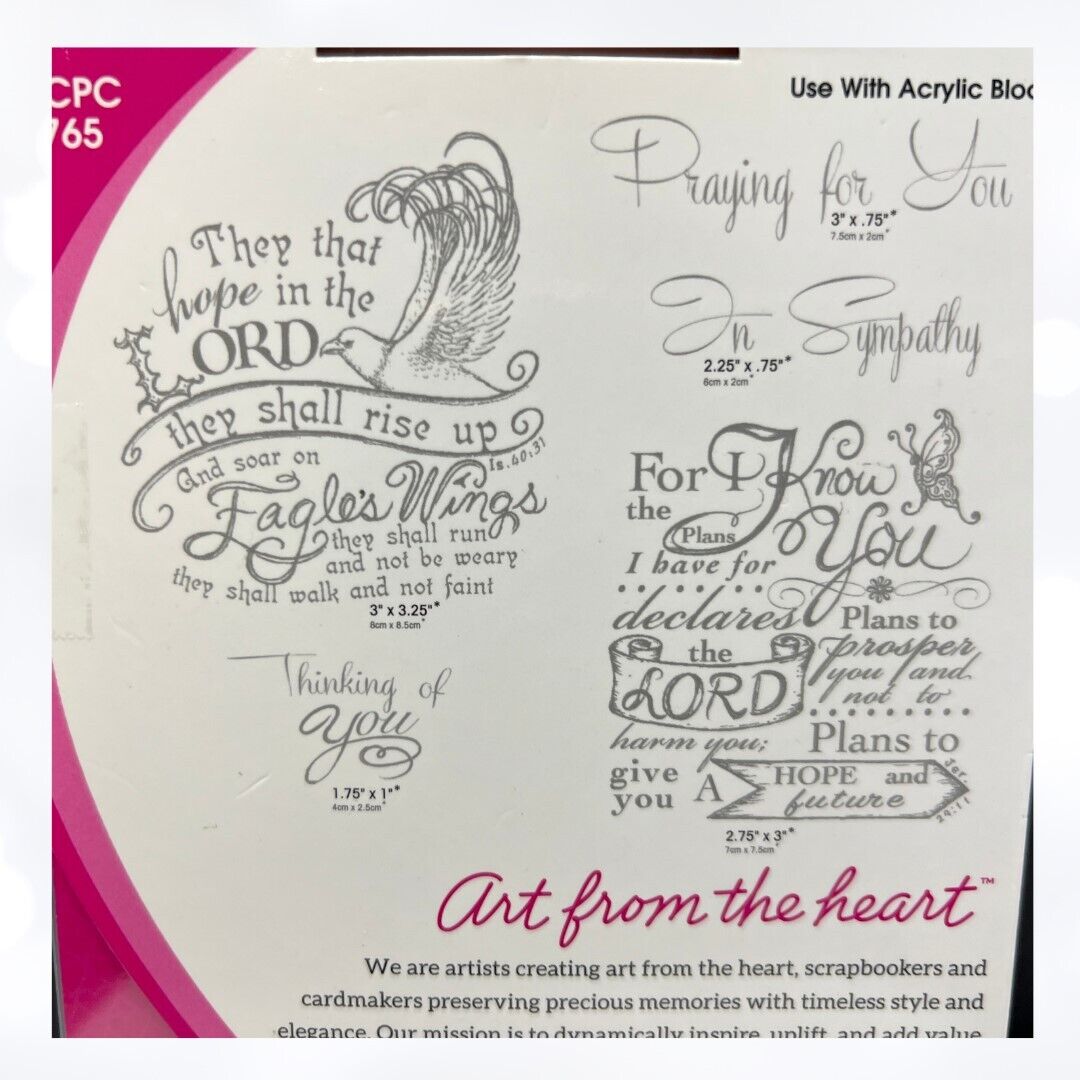 CPC
765
Use With Acrylic
They that
hope in the
LORD
they shall rise up
Is. 40:31
And soar on
Eagle's Wings
they shall run
and not be weary
they shall walk and not faint
3" x 3.25"*
8cm x 8.5cm*
Thinking of
you
1.75" x 1"*
4cm x 2.5cm*
Praying for You
3" x .75"*
7.5cm x 2cm*
In Sympathy
2.25" x .75"*
6cm x 2cm*
For I Know
the
Plans
You
I have for
declares
the
LORD
Plans to
prosper
you and
not to
harm you;
Plans to
give
you A
HOPE and
future
Jer.
29:11
2.75" x 3"*
7cm x 7.5cm*
Art from the heart™
We are artists creating art from the heart, scrapbookers and
cardmakers preserving precious memories with timeless style and
elegance. Our mission is to dynamically inspire, uplift, and add value